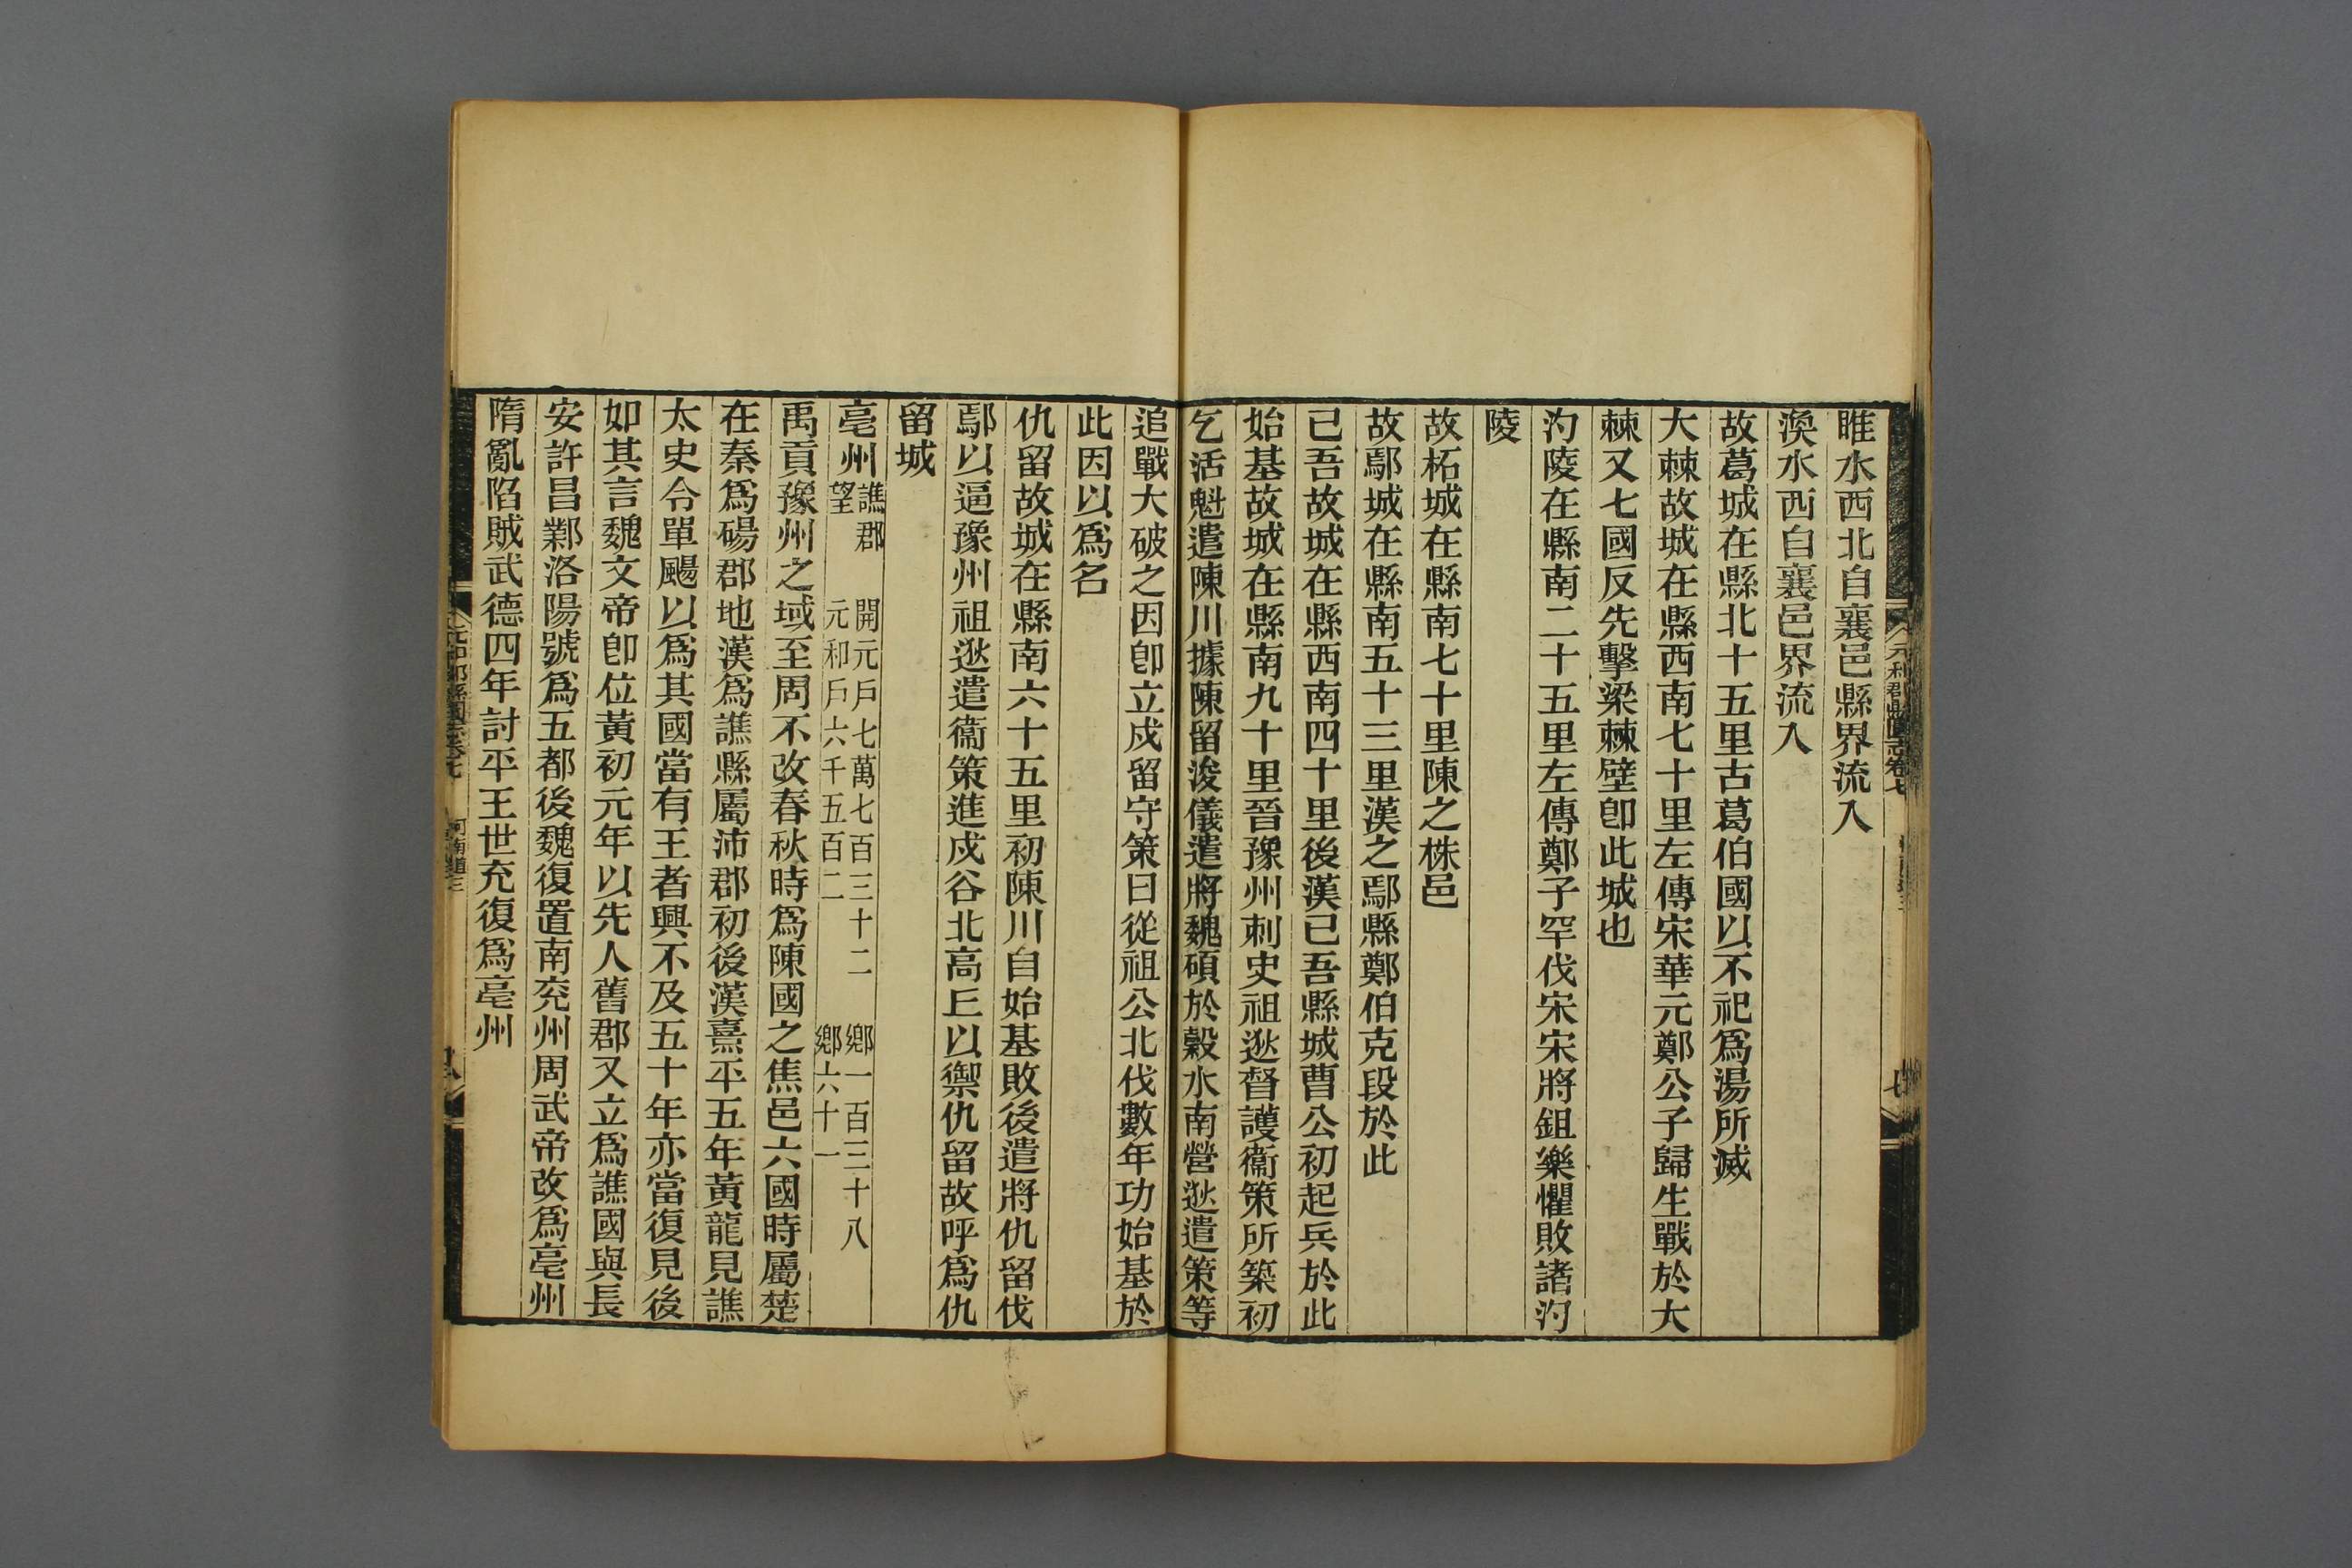 睢水西北自襄邑縣界流入
渙水西自襄邑界流入
故葛城在縣北十五里古葛伯國以不祀爲湯所滅
大棘故城在縣西南七十里左傳宋華元鄭公子歸生戰於大
棘又七國反先擊梁棘壁卽此城也
汋陵在縣南二十五里左傳鄭子罕伐宋宋將鉏樂懼敗諸汋
陵
故柘城在縣南七十里陳之株邑
故鄢城在縣南五十三里漢之鄢縣鄭伯克段於此
已吾故城在縣西南四十里後漢已吾縣城曹公初起兵於此
始基故城在縣南九十里晉豫州刺史祖逖督護衞策所築初
乞活魁遣陳川據陳留浚儀遣將魏碩於榖水南營逖遣策等
追戰大破之因卽立戍留守策曰從祖公北伐數年功始基於
此因以爲名
仇留故城在縣南六十五里初陳川自始基敗後遣將仇留伐
鄢以逼豫州祖逖遣衞策進戍谷北高丘以禦仇留故呼爲仇
留城
亳州譙郡 望 開元戶七萬七百三十二 鄉一百三十八 元和戶六千五百二 鄉六十一
禹貢豫州之域至周不改春秋時爲陳國之焦邑六國時屬楚
在秦爲碭郡地漢爲譙縣屬沛郡初後漢熹平五年黃龍見譙
太史令單颺以爲其國當有王者興不及五十年亦當復見後
如其言魏文帝卽位黃初元年以先人舊郡又立爲譙國與長
安許昌鄴洛陽號爲五都後魏復置南兖州周武帝改爲亳州
隋亂陷賊武德四年討平王世充復爲亳州
元和郡縣圖志卷七 河南道三